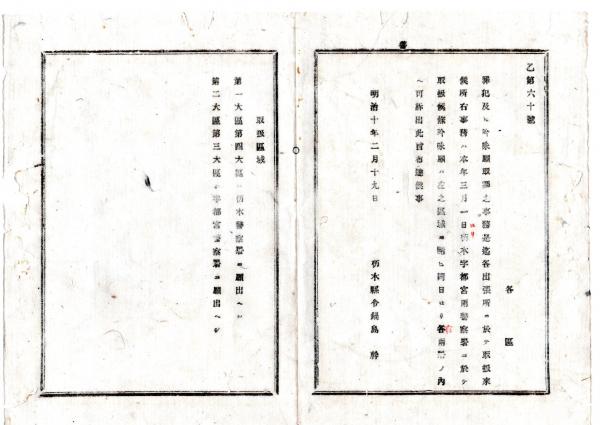 乙第六十號
各區
罪犯及ヒ吟味願取調之事務是迄各出張所ニ於テ取扱來
候所右事務ハ本年三月一日
ヨリ
栃木宇都宮兩警察署ニ於テ
取扱候條吟味願ハ左之區域ニ照シ同日ヨリ
右
各兩署ノ內
ヘ可訴出此旨布達候事
明治十年二月十九日
栃木縣令鍋島幹
取扱區域
第一大區第四大區ハ栃木警察署ニ願出ヘシ
第二大區第三大區ハ宇都宮警察署ニ願出ヘシ